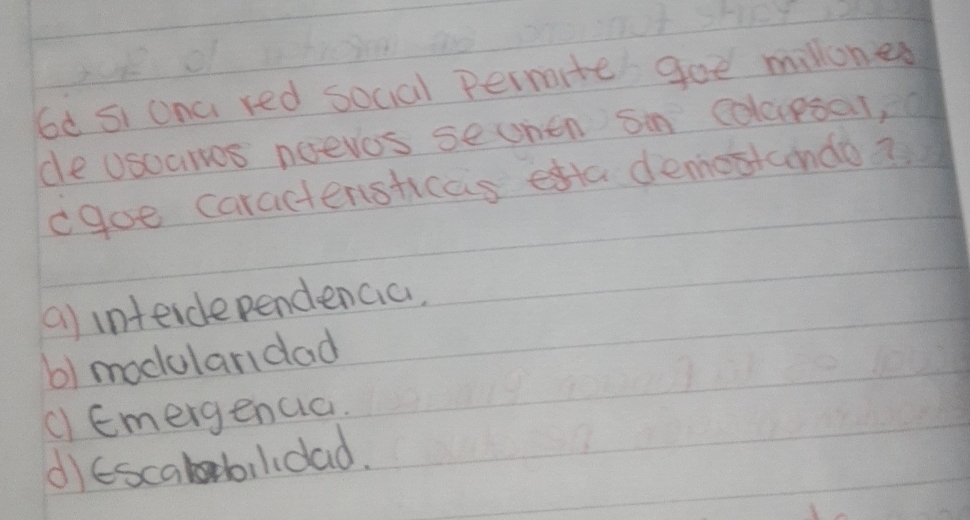 6¿ si una red social Permite que millones
de usuarios nuevos se unen sin colapsar,
¿que caracteristicas esta demostrando?
a) interdependencia.
b) modularidad
c) Emergencia.
d) Escalabilidad.